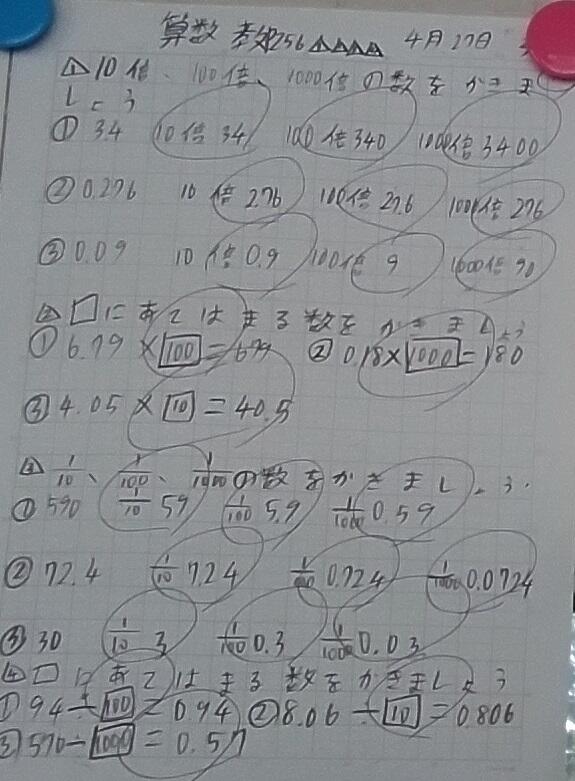 算数 256△△△△ 4月27日
△10倍、100倍、1000倍の数をかきま
しょう
① 3.4 10倍 34 100倍 340 1000倍 3400
② 0.276 10倍 2.76 100倍 27.6 1000倍 276
③ 0.09 10倍 0.9 100倍 9 1000倍 90
□にあてはまる数をかきましょう
① 6.79 × 100 = 679 ② 0.18 × 1000 = 180
③ 4.05 × 10 = 40.5
1/10、1/100、1/1000の数をかきましょう.
① 590 1/10 59 1/100 5.9 1/1000 0.59
② 72.4 1/10 7.24 1/100 0.724 1/1000 0.0724
③ 30 1/10 3 1/100 0.3 1/1000 0.03
□にあてはまる数をかきましょう
① 94 ÷ 100 = 0.94 ② 8.06 ÷ 10 = 0.806
③ 570 ÷ 1000 = 0.57